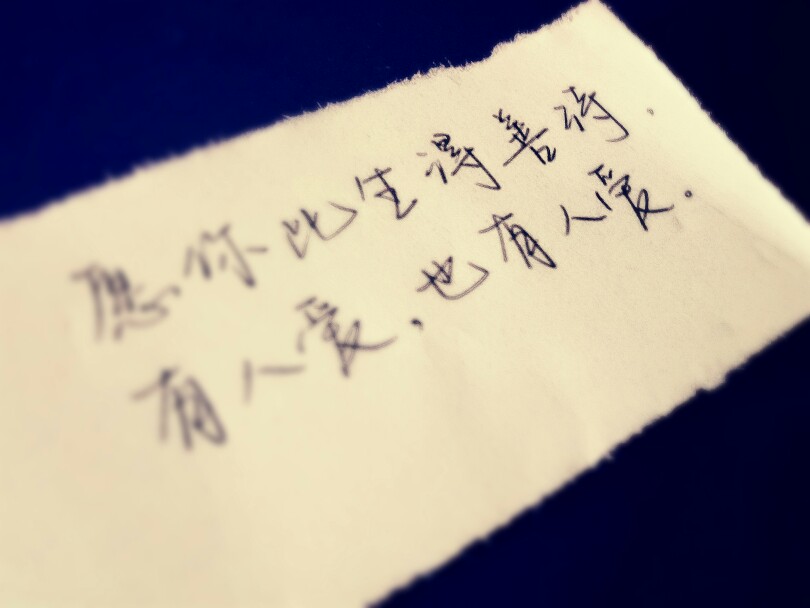 愿你比生得善待.
有人爱，也有人爱。